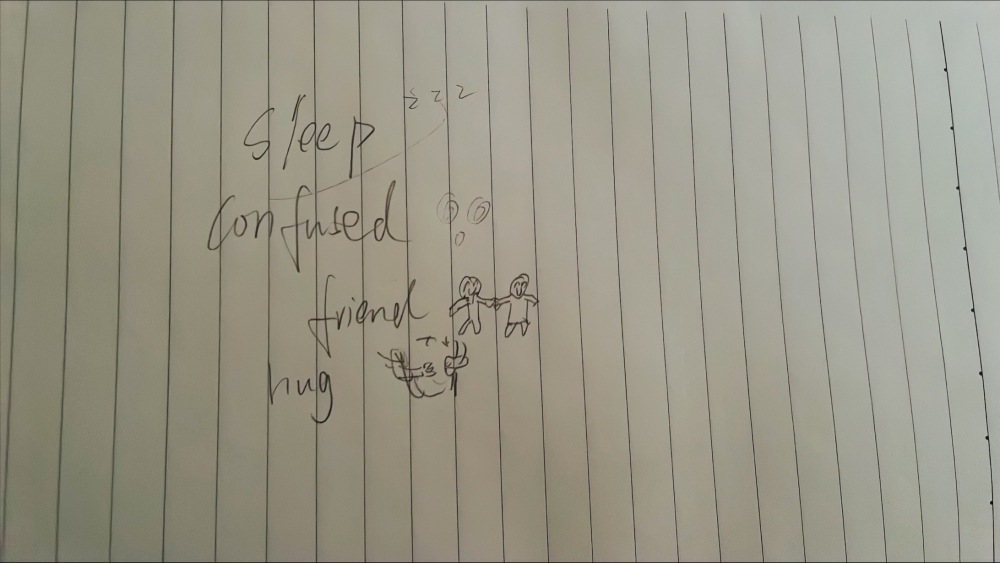 sleep zzz
confused
friend
hug